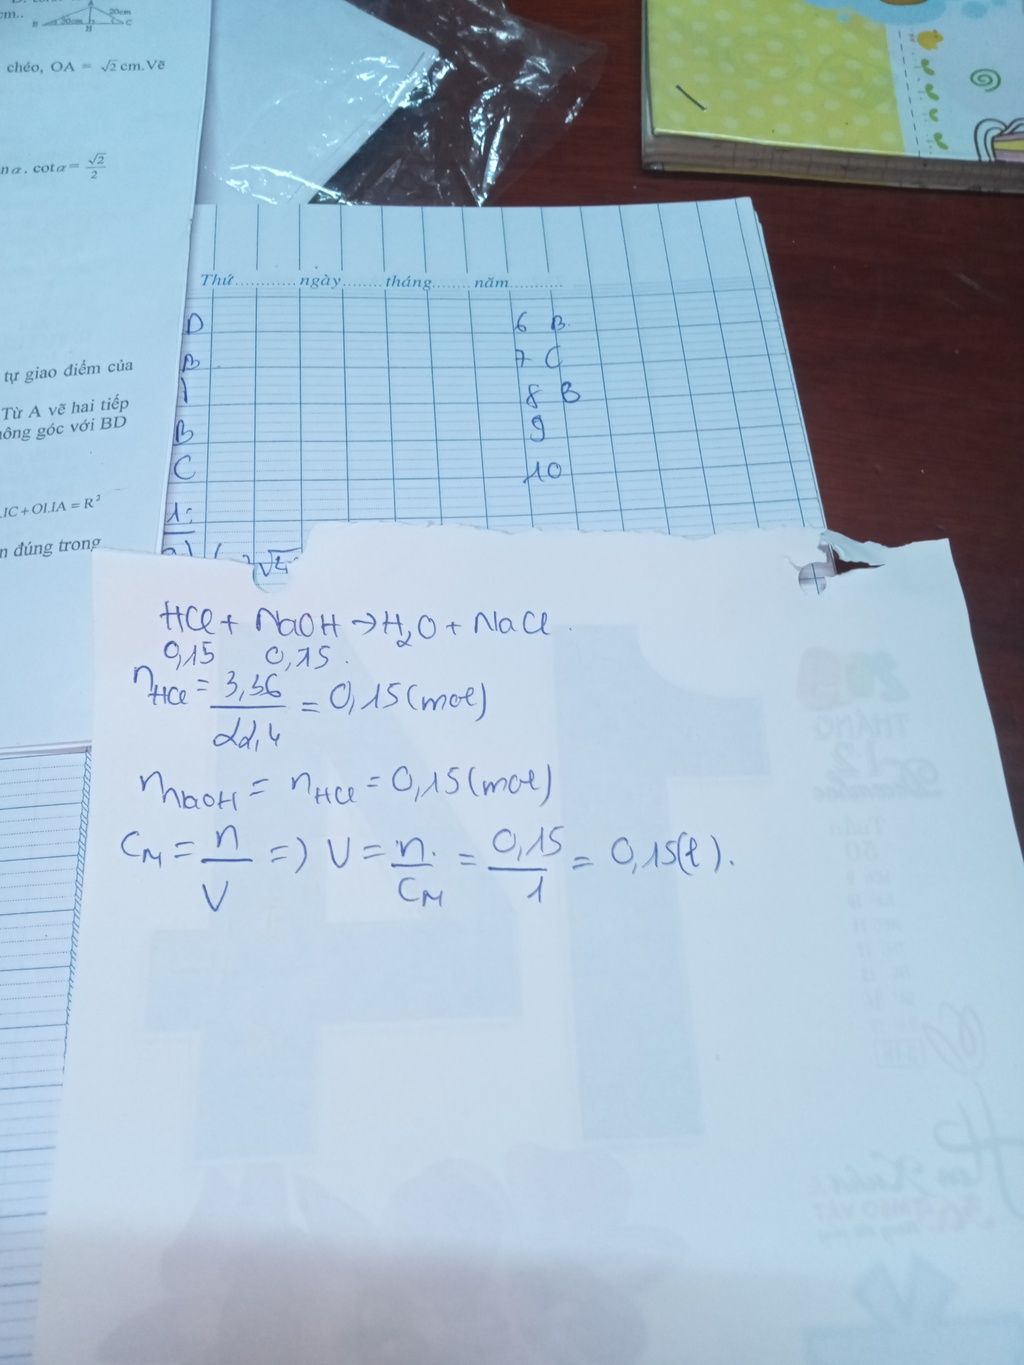 cm..
20cm
30cm
B
H
C
chéo, OA = √2 cm.Vẽ
cotα = √2/2
tự giao điểm của
Từ A vẽ hai tiếp
góc với BD
IC + OI.IA = R²
đúng trong
Thứ............ ngày........ tháng....... năm...........
D 6 B
B 7 C
8 B
B 9
C 10
1:
HCl + NaOH → H₂O + NaCl
0,15 0,15
nHCl = 3,36/22,4 = 0,15 (mol)
nNaOH = nHCl = 0,15 (mol)
CM = n/V => V = n/CM = 0,15/1 = 0,15 (l).